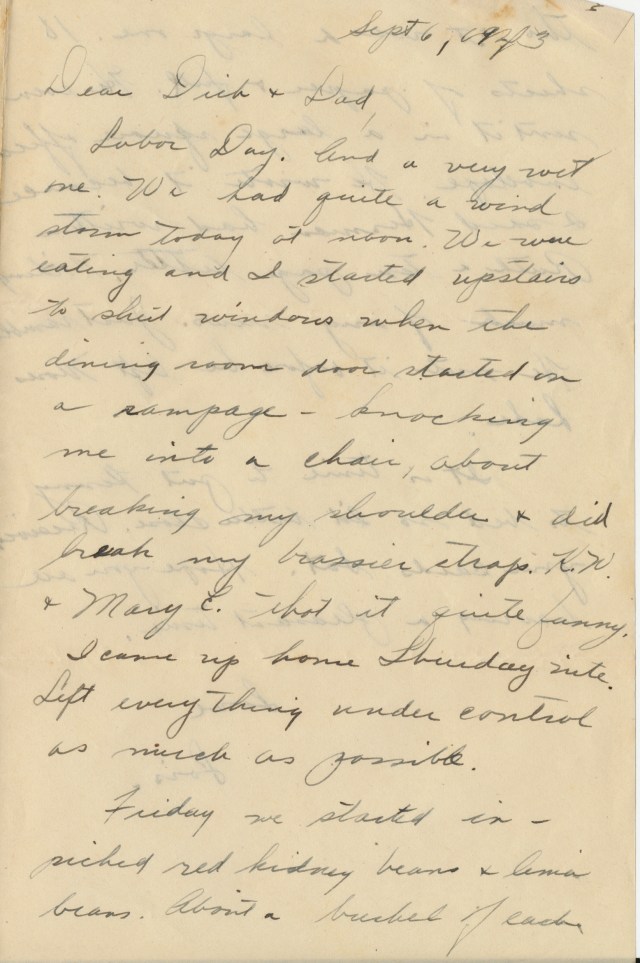 Sept 6, 1943
Dear Dick & Dad,
Labor Day. And a very wet
one. We had quite a wind
storm today at noon. We were
eating and I started upstairs
to shut windows when the
dining room door started on
a rampage - knocking
me into a chair, about
breaking my shoulder & did
break my brassier straps. K.W.
& Mary E. thot it quite funny.
I came up home Thursday nite.
Left everything under control
as much as possible.
Friday we started in -
picked red kidney beans & lima
beans. About a bushel of each